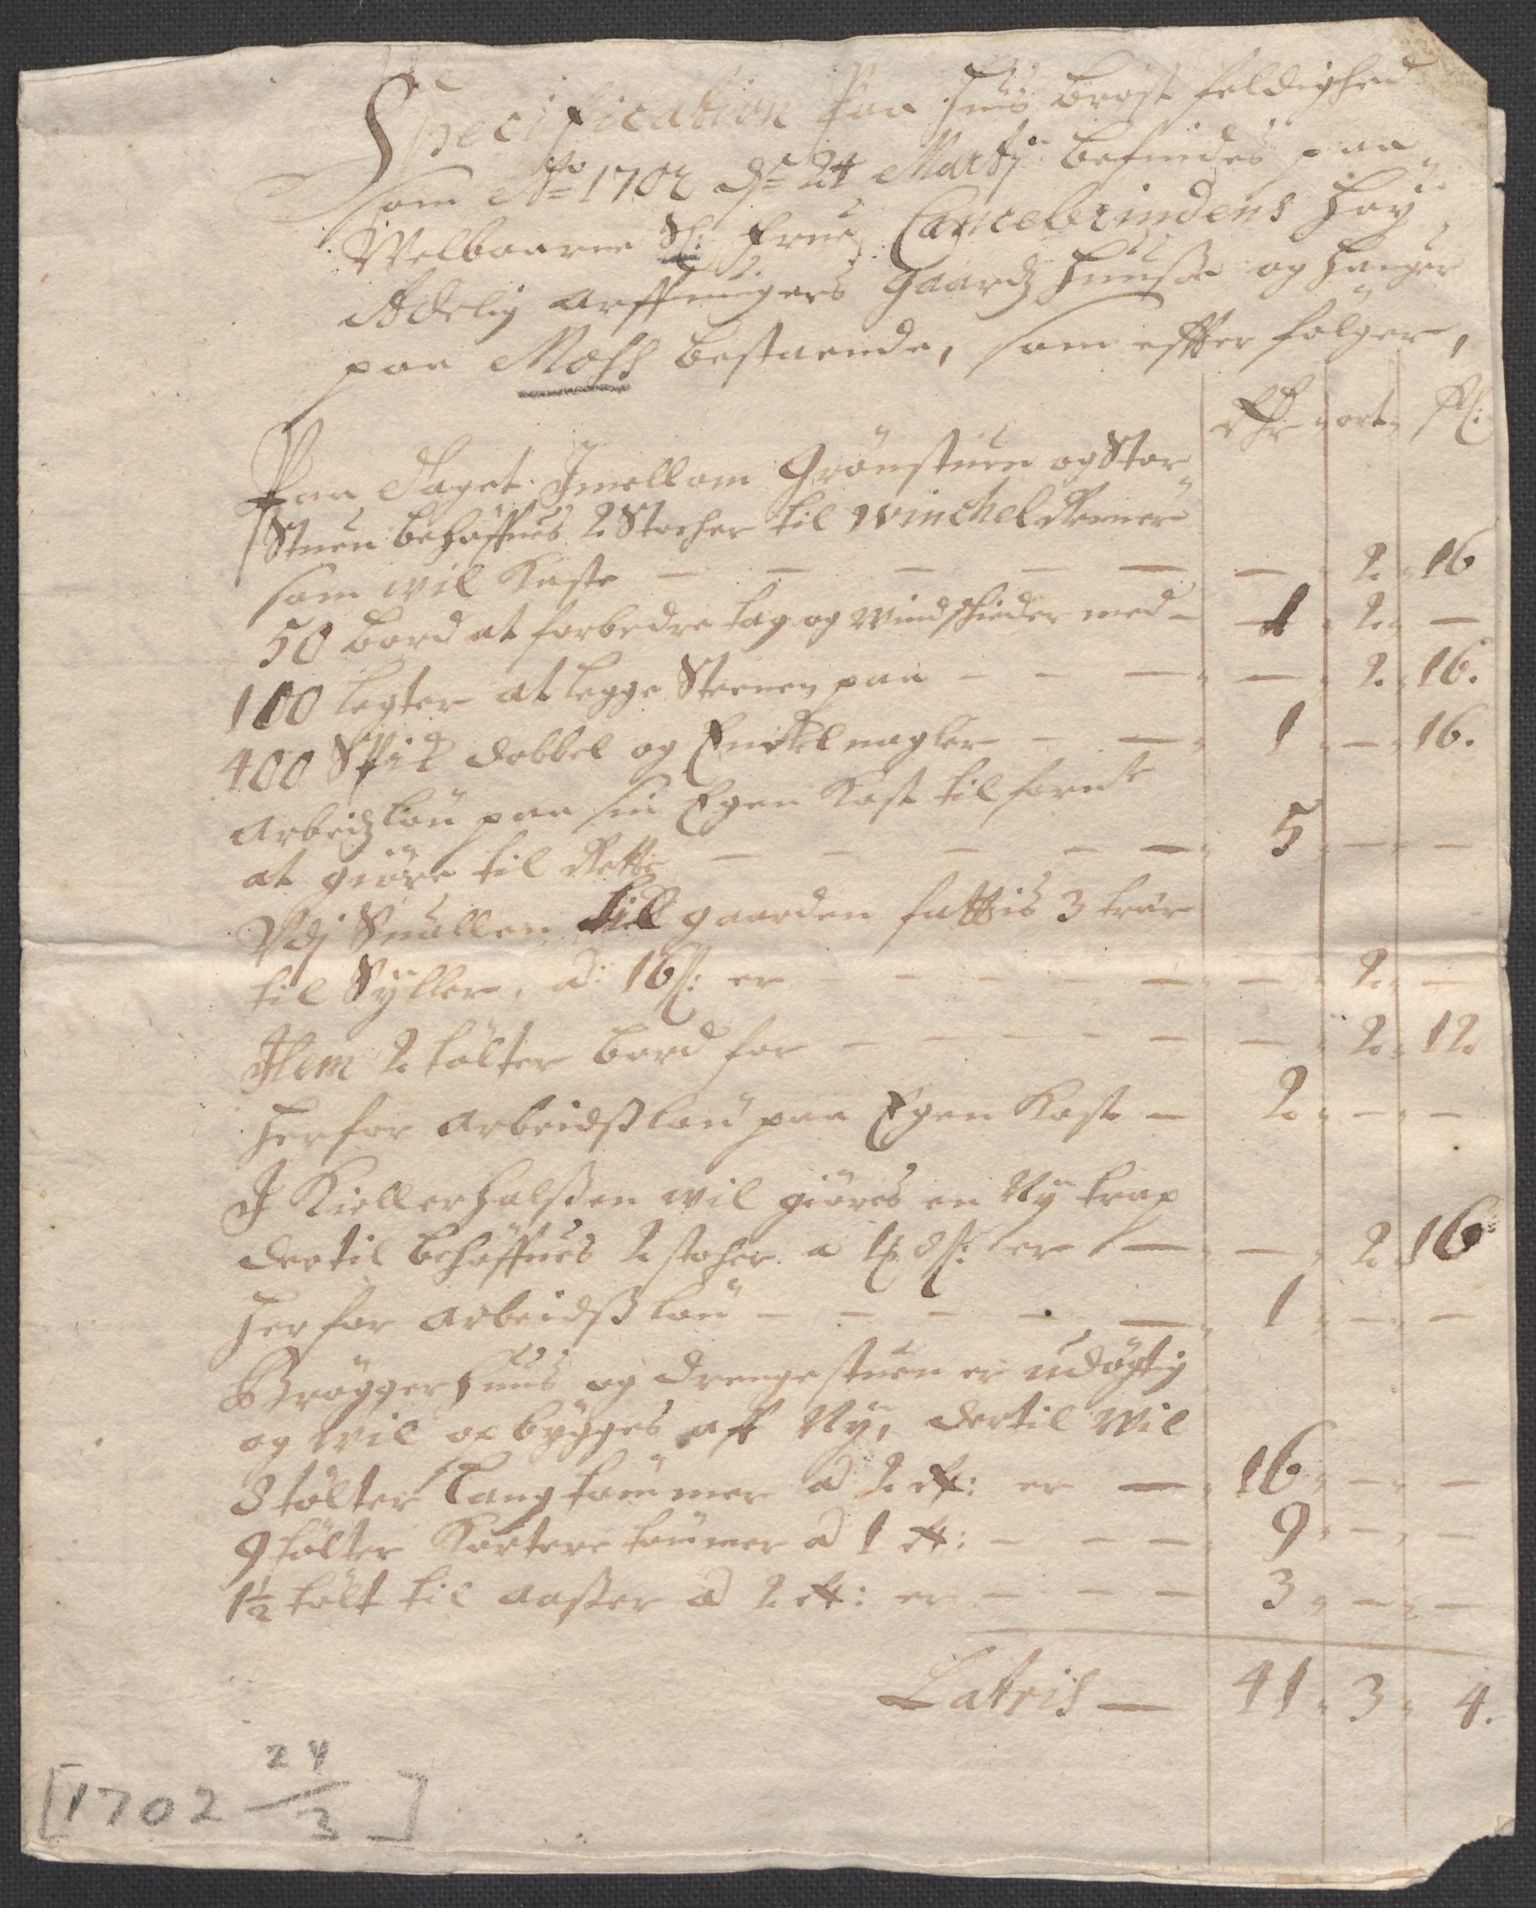 Specification Paa Huus brøst feldighed
som Ao 1702 d: 24 Martij befindes paa
Welbaarne Sl: Frue Cancelerindens Høy
Adelig Arffvingers gaardz Huuse og Hauger
paa Moss bestaaende, som effter følger,
Rdr ort sl:
Paa Taget Imellom Grønstuen og Stor
Stuen behøffues 2 Stocher til winchel Renner
som wil Koste — — — — — — 2 . 16
50 bord at forbedre tag og windschieder med — 1 . 2 . —
100 legter at legge Steenen paa — — — — 2 . 16.
400 Spik dobbel og Enckel nagler — — 1 . — 16.
Arbeidzløn paa sin Egen Kost til forn:te
at giøre til Rette — — — — — 5 — —
Vdj Suallen till gaarden fattis 3 trær
til Syller, a: 16 sl: er — — — — — 2 . —
Item 2 tølter bord for — — — — — — 2 . 12
Herfor arbeidsløn paa Egen Kost — 2 . — . —
I Kiellerhalsen wil giøres en Ny trap
dertil behøffues 2 stocher a 1 ort 8 sl: er — — 2 . 16
Herfor arbeidsløn — — — — — 1 . — . —
Brøggerhuus og drengestuen er udøgtig
og wil opbygges aff Ny, dertil wil
8 tølter Langtømmer a 2 rdr: er — 16 . — . —
9 tølter Kortere tømmer a 1 rdr: — — — 9 . — . —
1½ tølt til aasser a 2 rdr: er — — — 3 . — . —
Latris — 41 . 3 . 4.
[1702 24/3]